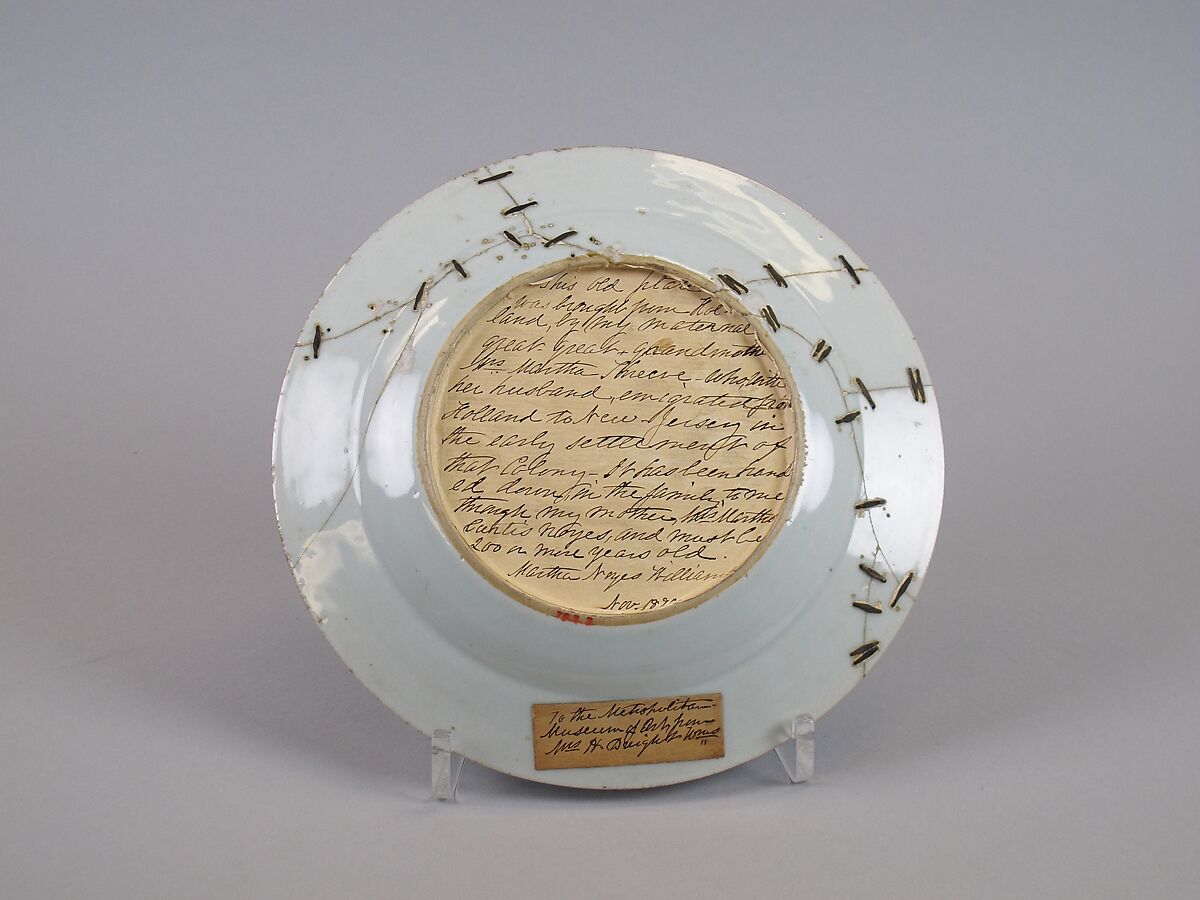 This old plate
was brought from Hol-
land, by my maternal
great-great-grandmother
Mrs Martha Shreve - who, with
her husband, emigrated from
Holland to New Jersey in
the early settlement of
that Colony - It has been hand
ed down, in the family, to me
through my mother, Mrs Martha
Curtis Noyes, and must be
200 or more years old.
Martha Noyes Williams
Nov. 18
To the Metropolitan
Museum of Art, from
Mrs H. Dwight Wms